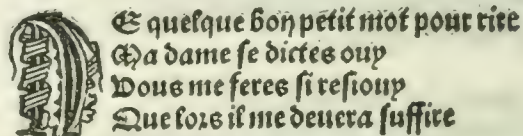 De quelque bon petit mot pour rire
Ma dame se dictes ouy
Vous me feres si resiouy
Que lors il me deuera suffire